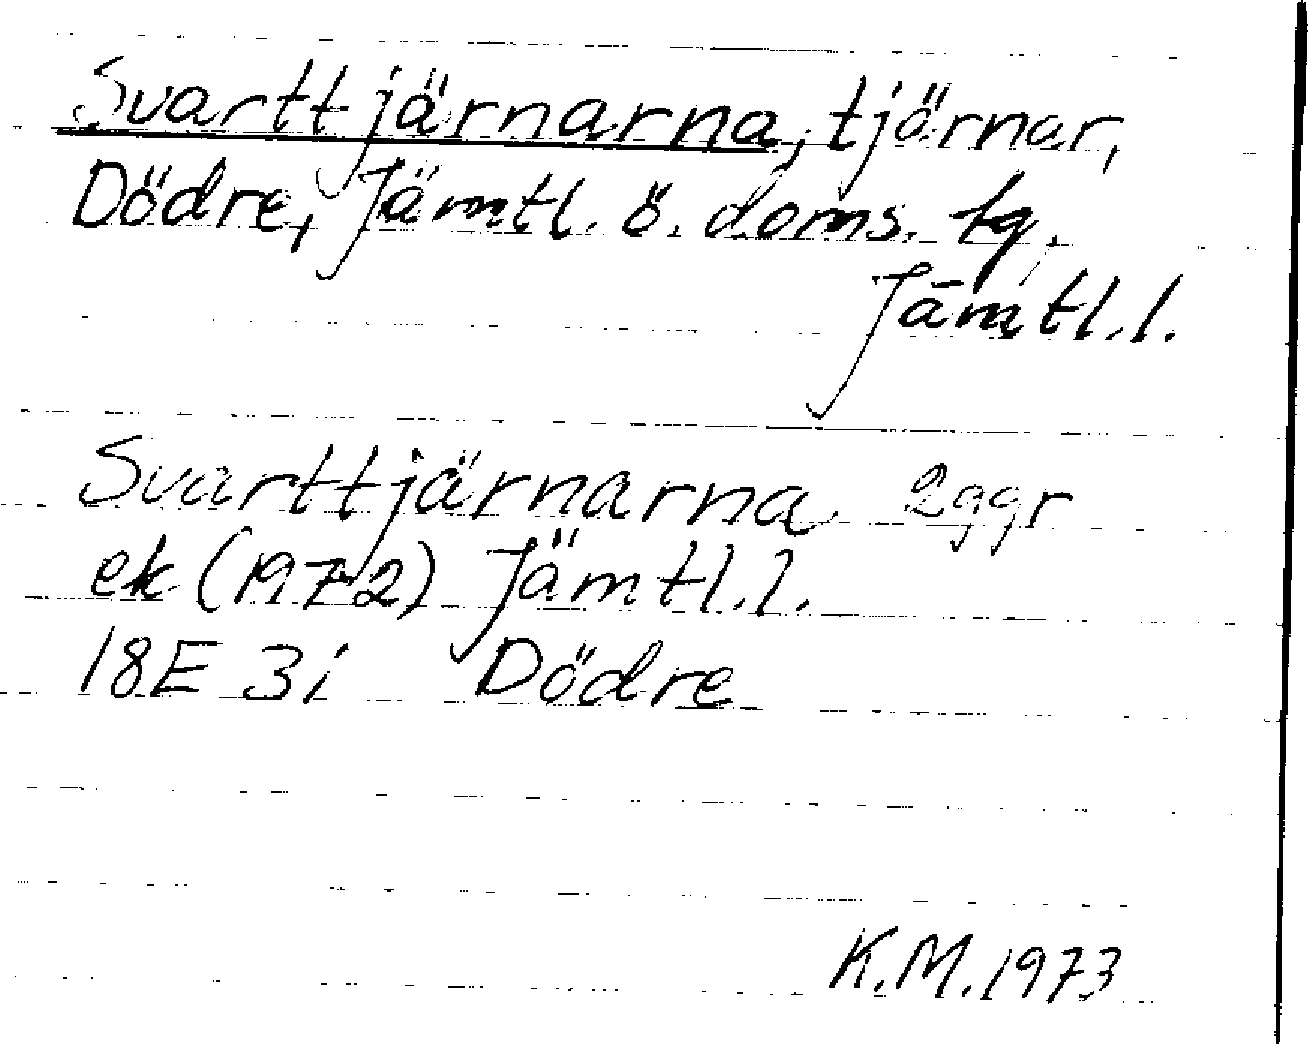 Svarttjärnarna, tjärnar,
Dödre, Jämtl. ö. doms. tg,
Jämtl.l.
Svarttjärnarna 2ggr
ek (1972) Jämtl.l.
18E 3i Dödre
K.M.1973